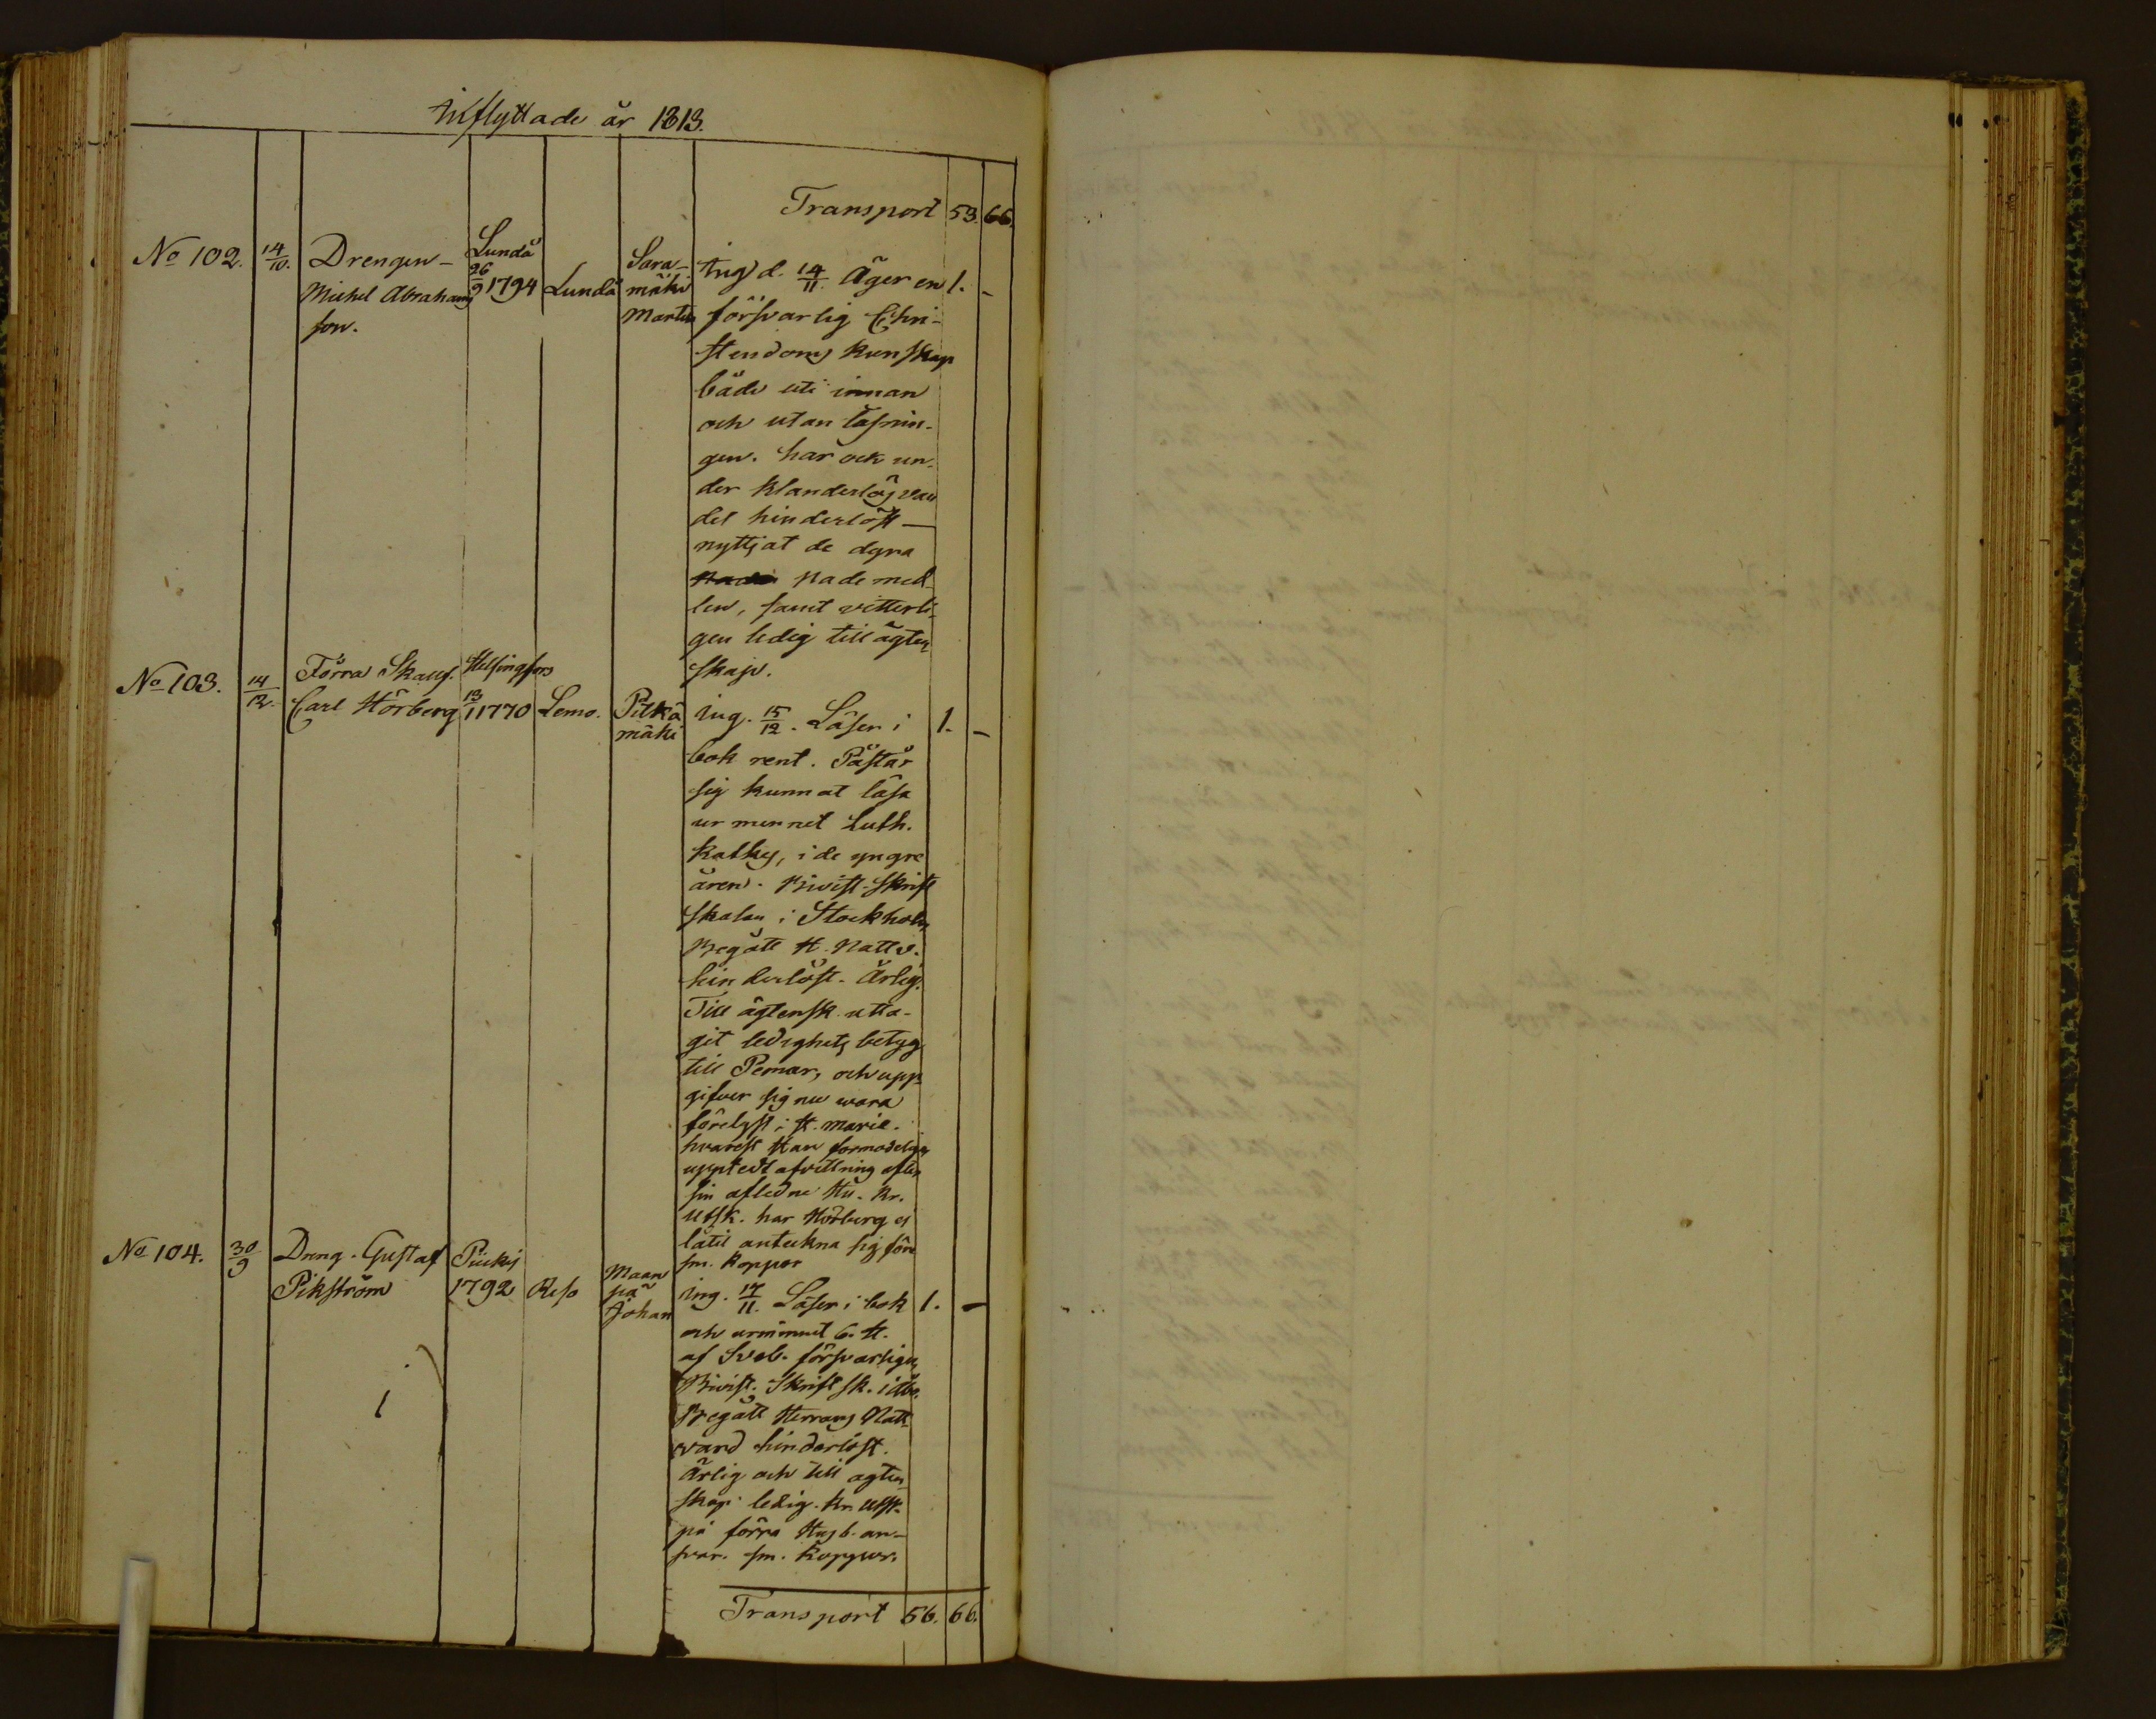 Inflyttade år 1813.
Transport 53. 66.
No 102. 14/10. Drengen Michel Abrahams son. Lundå 26/9 1794 Lundå Saramäki Martin
Ing d. 14/11. Äger en 1. -
försvarlig Chri-
stendoms kunskap
både uti innan
och utan läsnin-
gen. har ock un-
der klanderlös van
del hinderlöst
nyttjat de dyra
nade med-
len, samt vitterli-
gen ledig till ägten
skap.
No 103. 14/12. Förra Skarg. Carl Hörberg Helsingfors 13/1 1770 Lemo. Pitkä mäki
ing. 15/12. Läser i 1. -
bok rent. Påstår
sig kunnat läsa
ur minnet Luth.
Katkes, i de yngre
åren. Bivist. Skrift
skolan i Stockholm
Begått H. Nattv.
hinderlöst. Ärlig.
Till ägtensk. utta-
git ledighets betyg
till Pemar, och upp-
gifver sig nu wara
förelyst i St. Marie.
hvarest Han formodeligen
upptedt afvittring efter
sin aflidne Hu. Kr.
Utsk. har Hörberg ej
låtit anteckna sig före
sm. koppor
No 104. 30/9 Dreng. Gustaf Pikström Piikis 1792 Reso Maanpä Johan
ing. 17/11. Läser i bok 1. -
och urminnet 6. H.
af Sveb. försvarligen
Bivist. Skriftsk. i Åbo.
Begått Herrans Natt
vard hinderlöst.
Ärlig och till ägten
skap ledig. Kr. Utsk.
på förra Husb. an-
svar. sm. Koppor.
Transport 56. 66.